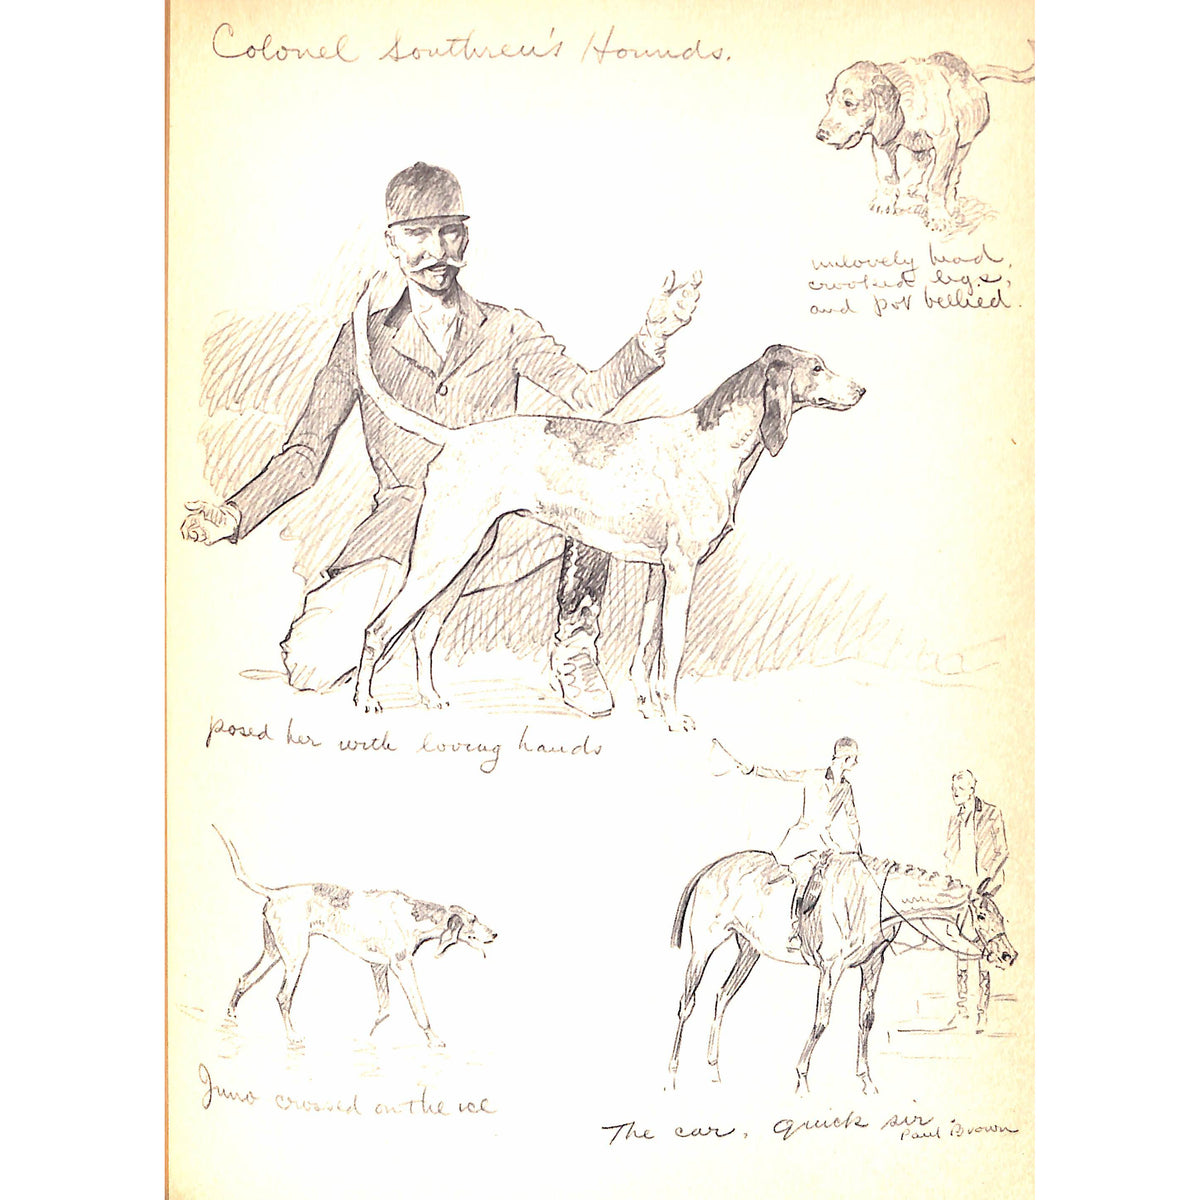 Colonel Southren's Hounds.
unlovely head,
crooked legs,
and pot bellied.
posed her with loving hands
Juno crossed on the ice
The car, quick sir.
Paul Brown